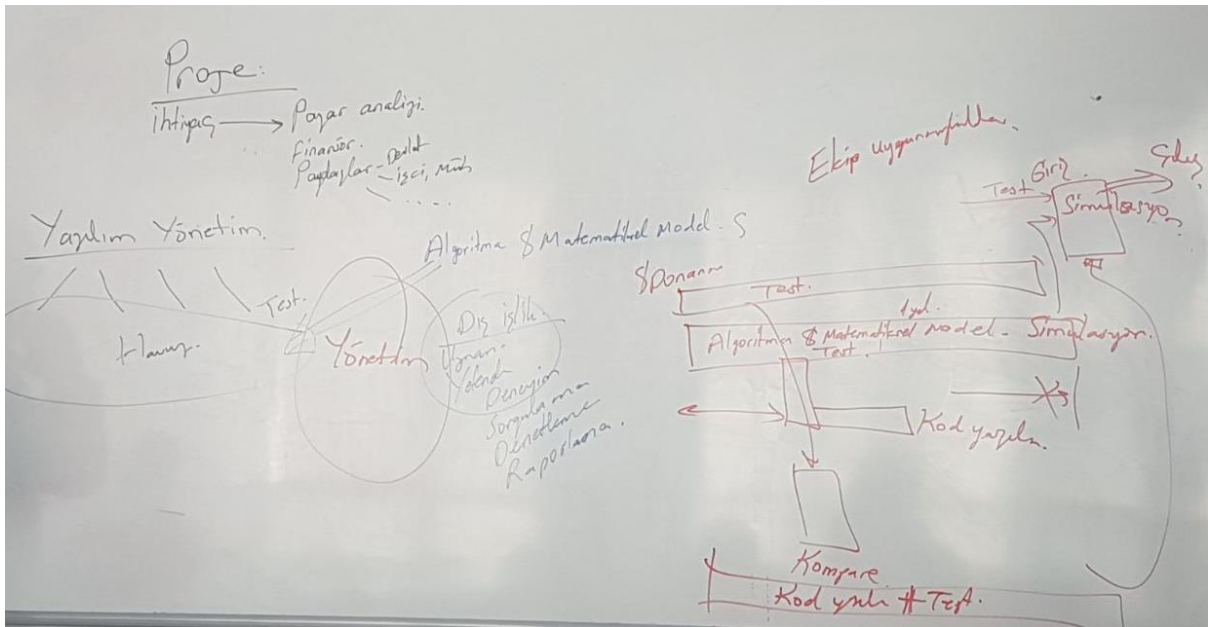 Proje:
ihtiyaç → Pazar analizi.
Finansör.
Paydaşlar - Devlet
- işci, Müh
.....
Yazılım Yönetim.
Test.
Yönetim
Algoritma & Matematiksel Model - S
Dış işlik.
Uzman.
Yetenek
Deneyim
Sorgulama
Denetleme
Raporlama.
Ekip
Test
Giriş.
Simülasyo
Test.
1 yıl.
Algoritma & Matematiksel Model - Simülasyon.
Test.
Kod yazılı
Kompare
Kod yazılı # Test.